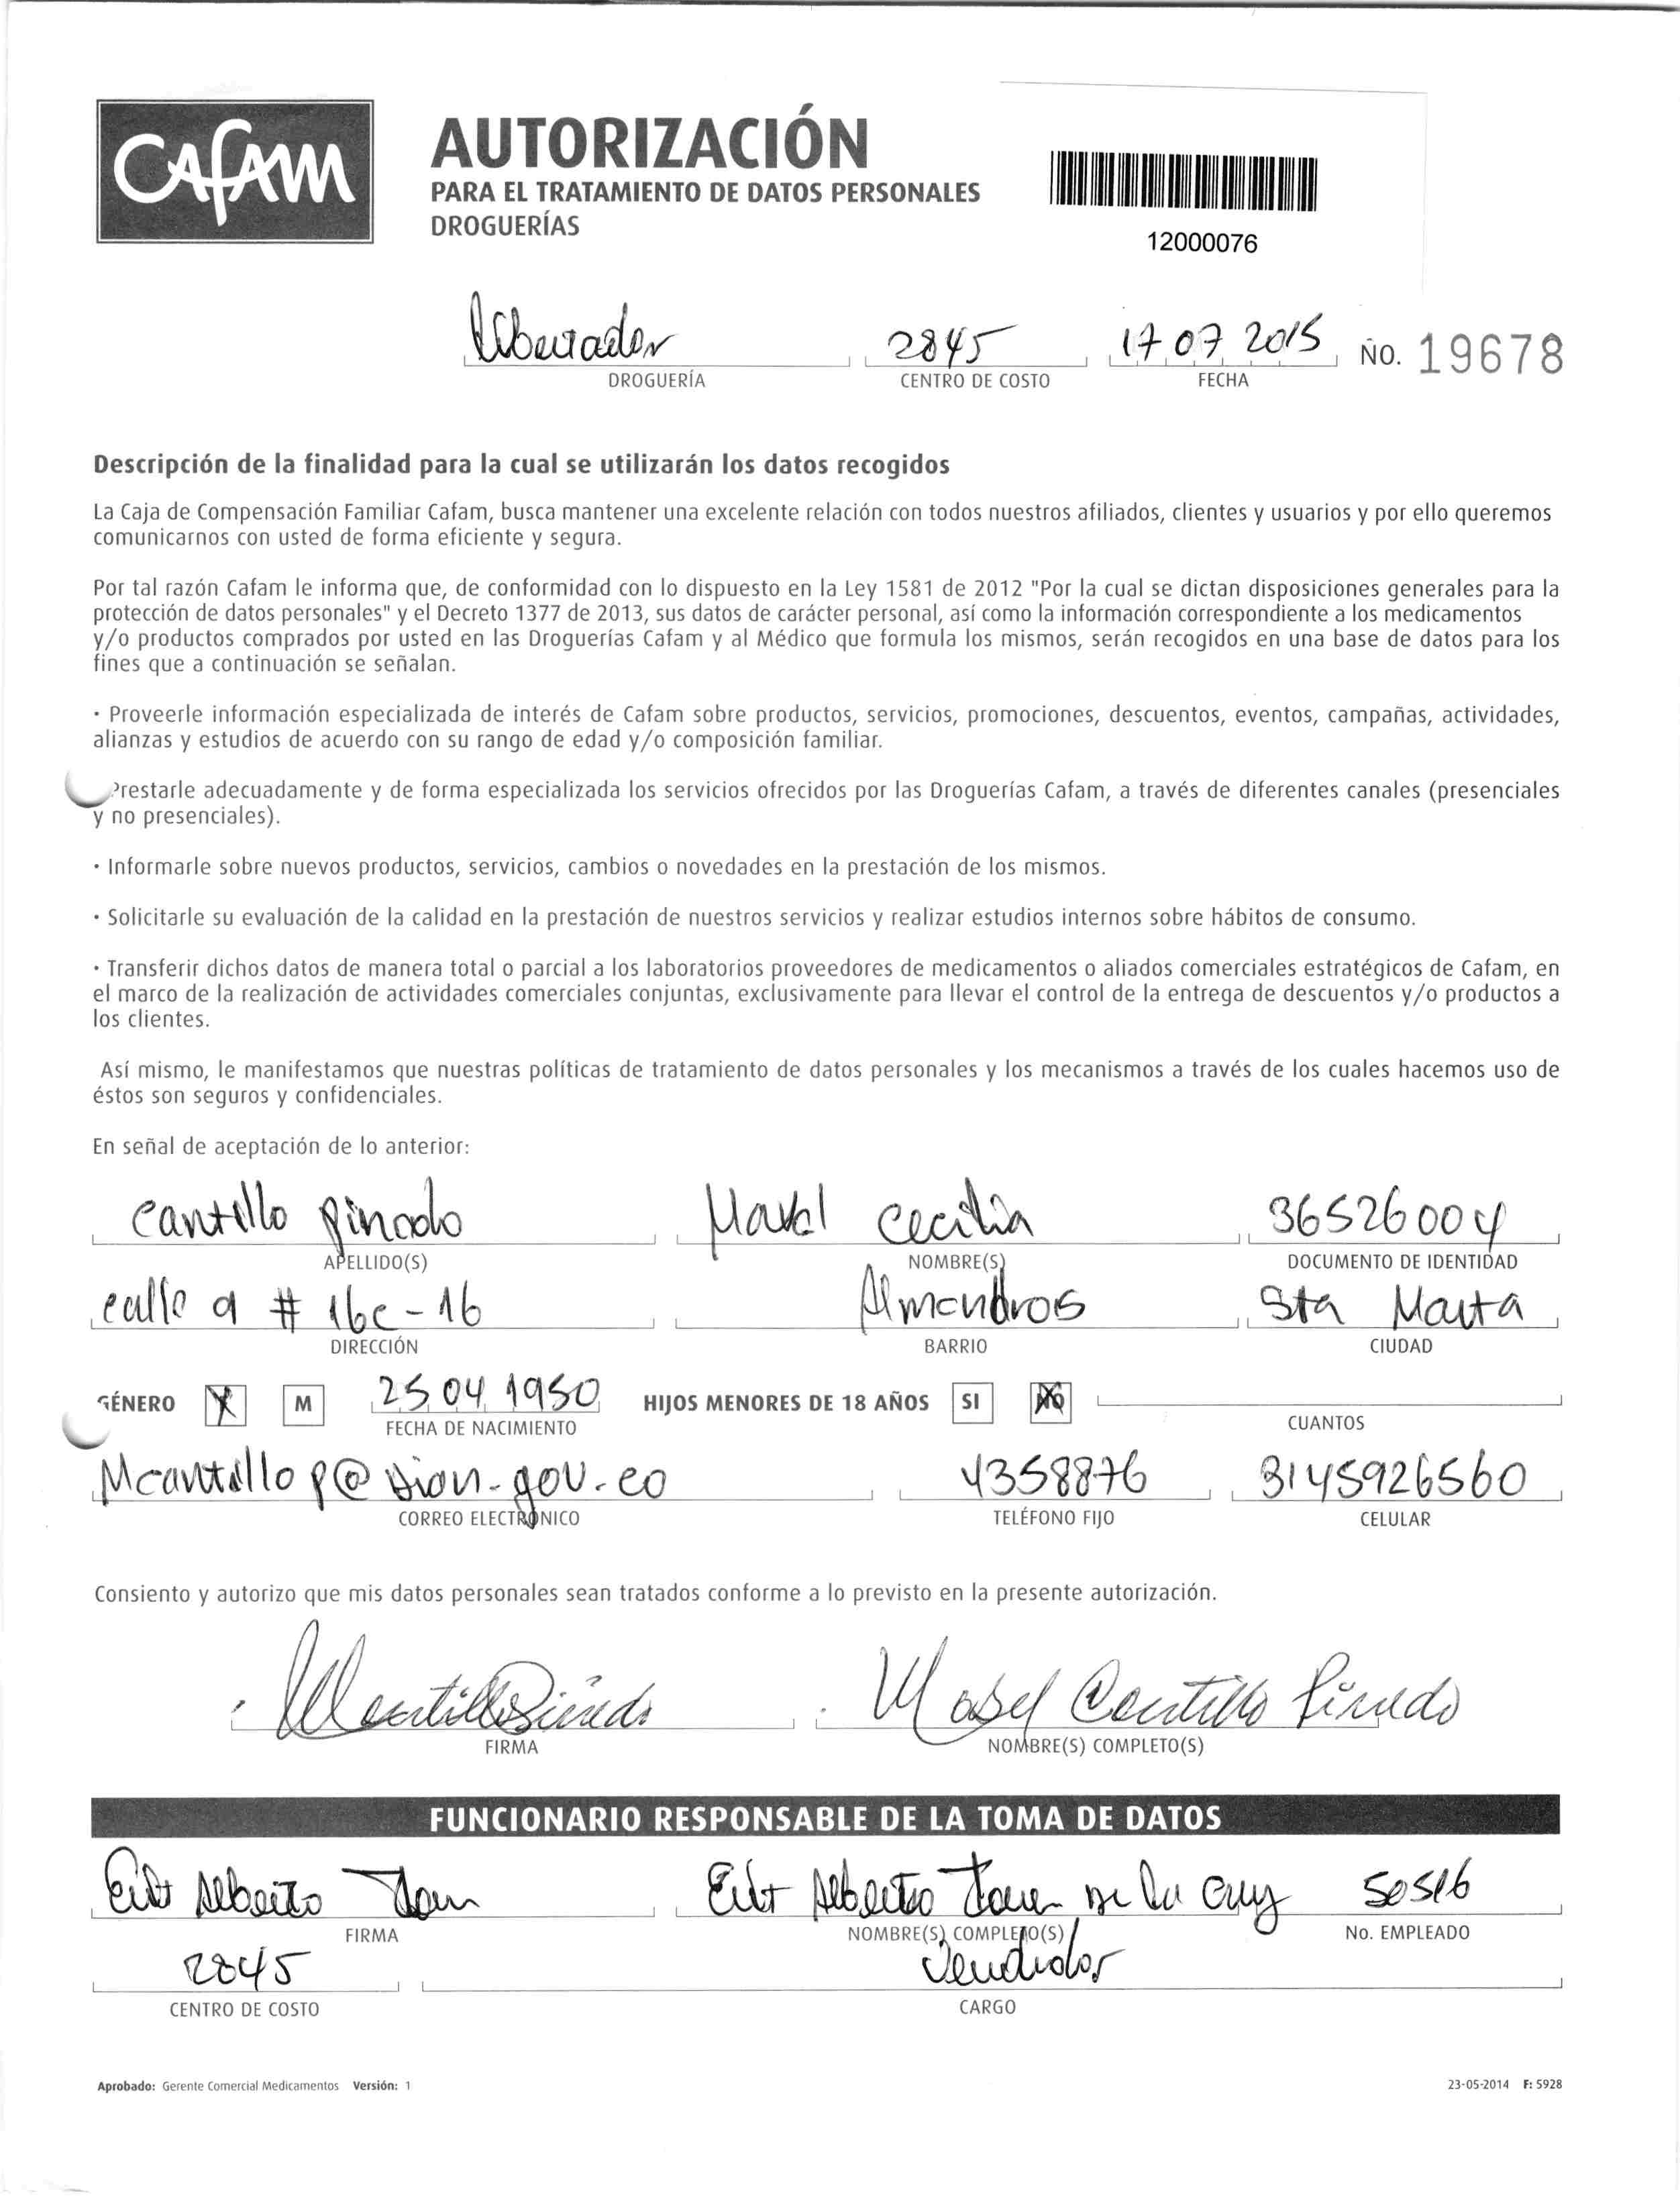 Cafam
AUTORIZACIÓN
PARA EL TRATAMIENTO DE DATOS PERSONALES
DROGUERÍAS
12000076
libertador 2845 17 07 2015 No. 19678
DROGUERÍA CENTRO DE COSTO FECHA
Descripción de la finalidad para la cual se utilizarán los datos recogidos
La Caja de Compensación Familiar Cafam, busca mantener una excelente relación con todos nuestros afiliados, clientes y usuarios y por ello queremos
comunicarnos con usted de forma eficiente y segura.
Por tal razón Cafam le informa que, de conformidad con lo dispuesto en la Ley 1581 de 2012 "Por la cual se dictan disposiciones generales para la
protección de datos personales" y el Decreto 1377 de 2013, sus datos de carácter personal, así como la información correspondiente a los medicamentos
y/o productos comprados por usted en las Droguerías Cafam y al Médico que formula los mismos, serán recogidos en una base de datos para los
fines que a continuación se señalan.
· Proveerle información especializada de interés de Cafam sobre productos, servicios, promociones, descuentos, eventos, campañas, actividades,
alianzas y estudios de acuerdo con su rango de edad y/o composición familiar.
Prestarle adecuadamente y de forma especializada los servicios ofrecidos por las Droguerías Cafam, a través de diferentes canales (presenciales
y no presenciales).
· Informarle sobre nuevos productos, servicios, cambios o novedades en la prestación de los mismos.
· Solicitarle su evaluación de la calidad en la prestación de nuestros servicios y realizar estudios internos sobre hábitos de consumo.
· Transferir dichos datos de manera total o parcial a los laboratorios proveedores de medicamentos o aliados comerciales estratégicos de Cafam, en
el marco de la realización de actividades comerciales conjuntas, exclusivamente para llevar el control de la entrega de descuentos y/o productos a
los clientes.
Así mismo, le manifestamos que nuestras políticas de tratamiento de datos personales y los mecanismos a través de los cuales hacemos uso de
éstos son seguros y confidenciales.
En señal de aceptación de lo anterior:
Cantillo Pinedo Cecilia 36526004
APELLIDO(S) NOMBRE(S) DOCUMENTO DE IDENTIDAD
calle 9 # 16c - 16 Almendros Sta Marta
DIRECCIÓN BARRIO CIUDAD
GÉNERO X M 25 04 1950 HIJOS MENORES DE 18 AÑOS SI NO
FECHA DE NACIMIENTO CUANTOS
4358876 3145926560
CORREO ELECTRÓNICO TELÉFONO FIJO CELULAR
Consiento y autorizo que mis datos personales sean tratados conforme a lo previsto en la presente autorización.
Cantillo Pinedo
FIRMA NOMBRE(S) COMPLETO(S)
FUNCIONARIO RESPONSABLE DE LA TOMA DE DATOS
Alberto Alberto de la Cruz 50516
FIRMA NOMBRE(S) COMPLETO(S) No. EMPLEADO
2845 Vendedor
CENTRO DE COSTO CARGO
Aprobado: Gerente Comercial Medicamentos Versión: 1 23-05-2014 F: 5928